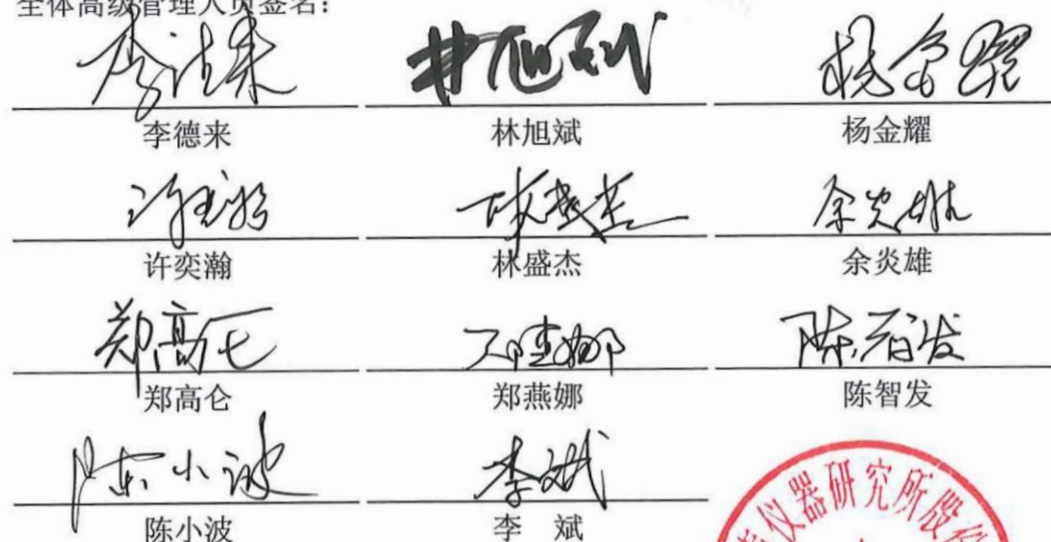 全体高级管理人员签名：
李德来 林旭斌 杨金耀
许奕瀚 林盛杰 余炎雄
郑高仑 郑燕娜 陈智发
陈小波 李 斌
仪器研究所股份